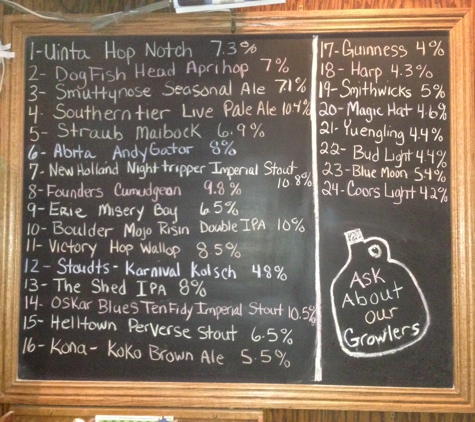 1-Uinta Hop Notch 7.3%
2- DogFish Head Aprihop 7%
3- Smuttynose Seasonal Ale 7.1%
4- Southern tier Live Pale Ale 10.4%
5- Straub Maibock 6.9%
6- Abita AndyGator 8%
7- New Holland Night tripper Imperial Stout 10.8%
8- Founders Cumudgean 9.8%
9- Erie Misery Bay 6.5%
10- Boulder Mojo Risin Double IPA 10%
11- Victory Hop Wallop 8.5%
12- Stoudts- Karnival Kolsch 4.8%
13- The Shed IPA 8%
14- OSKar Blues Ten Fidy Imperial Stout 10.5%
15- Helltown Perverse Stout 6.5%
16- Kona- Koko Brown Ale 5.5%
17- Guinness 4%
18- Harp 4.3%
19- Smithwicks 5%
20- Magic Hat 4.6%
21- Yuengling 4.4%
22- Bud Light 4.4%
23- Blue Moon 5.4%
24- Coors Light 4.2%
Ask
About
our
Growlers